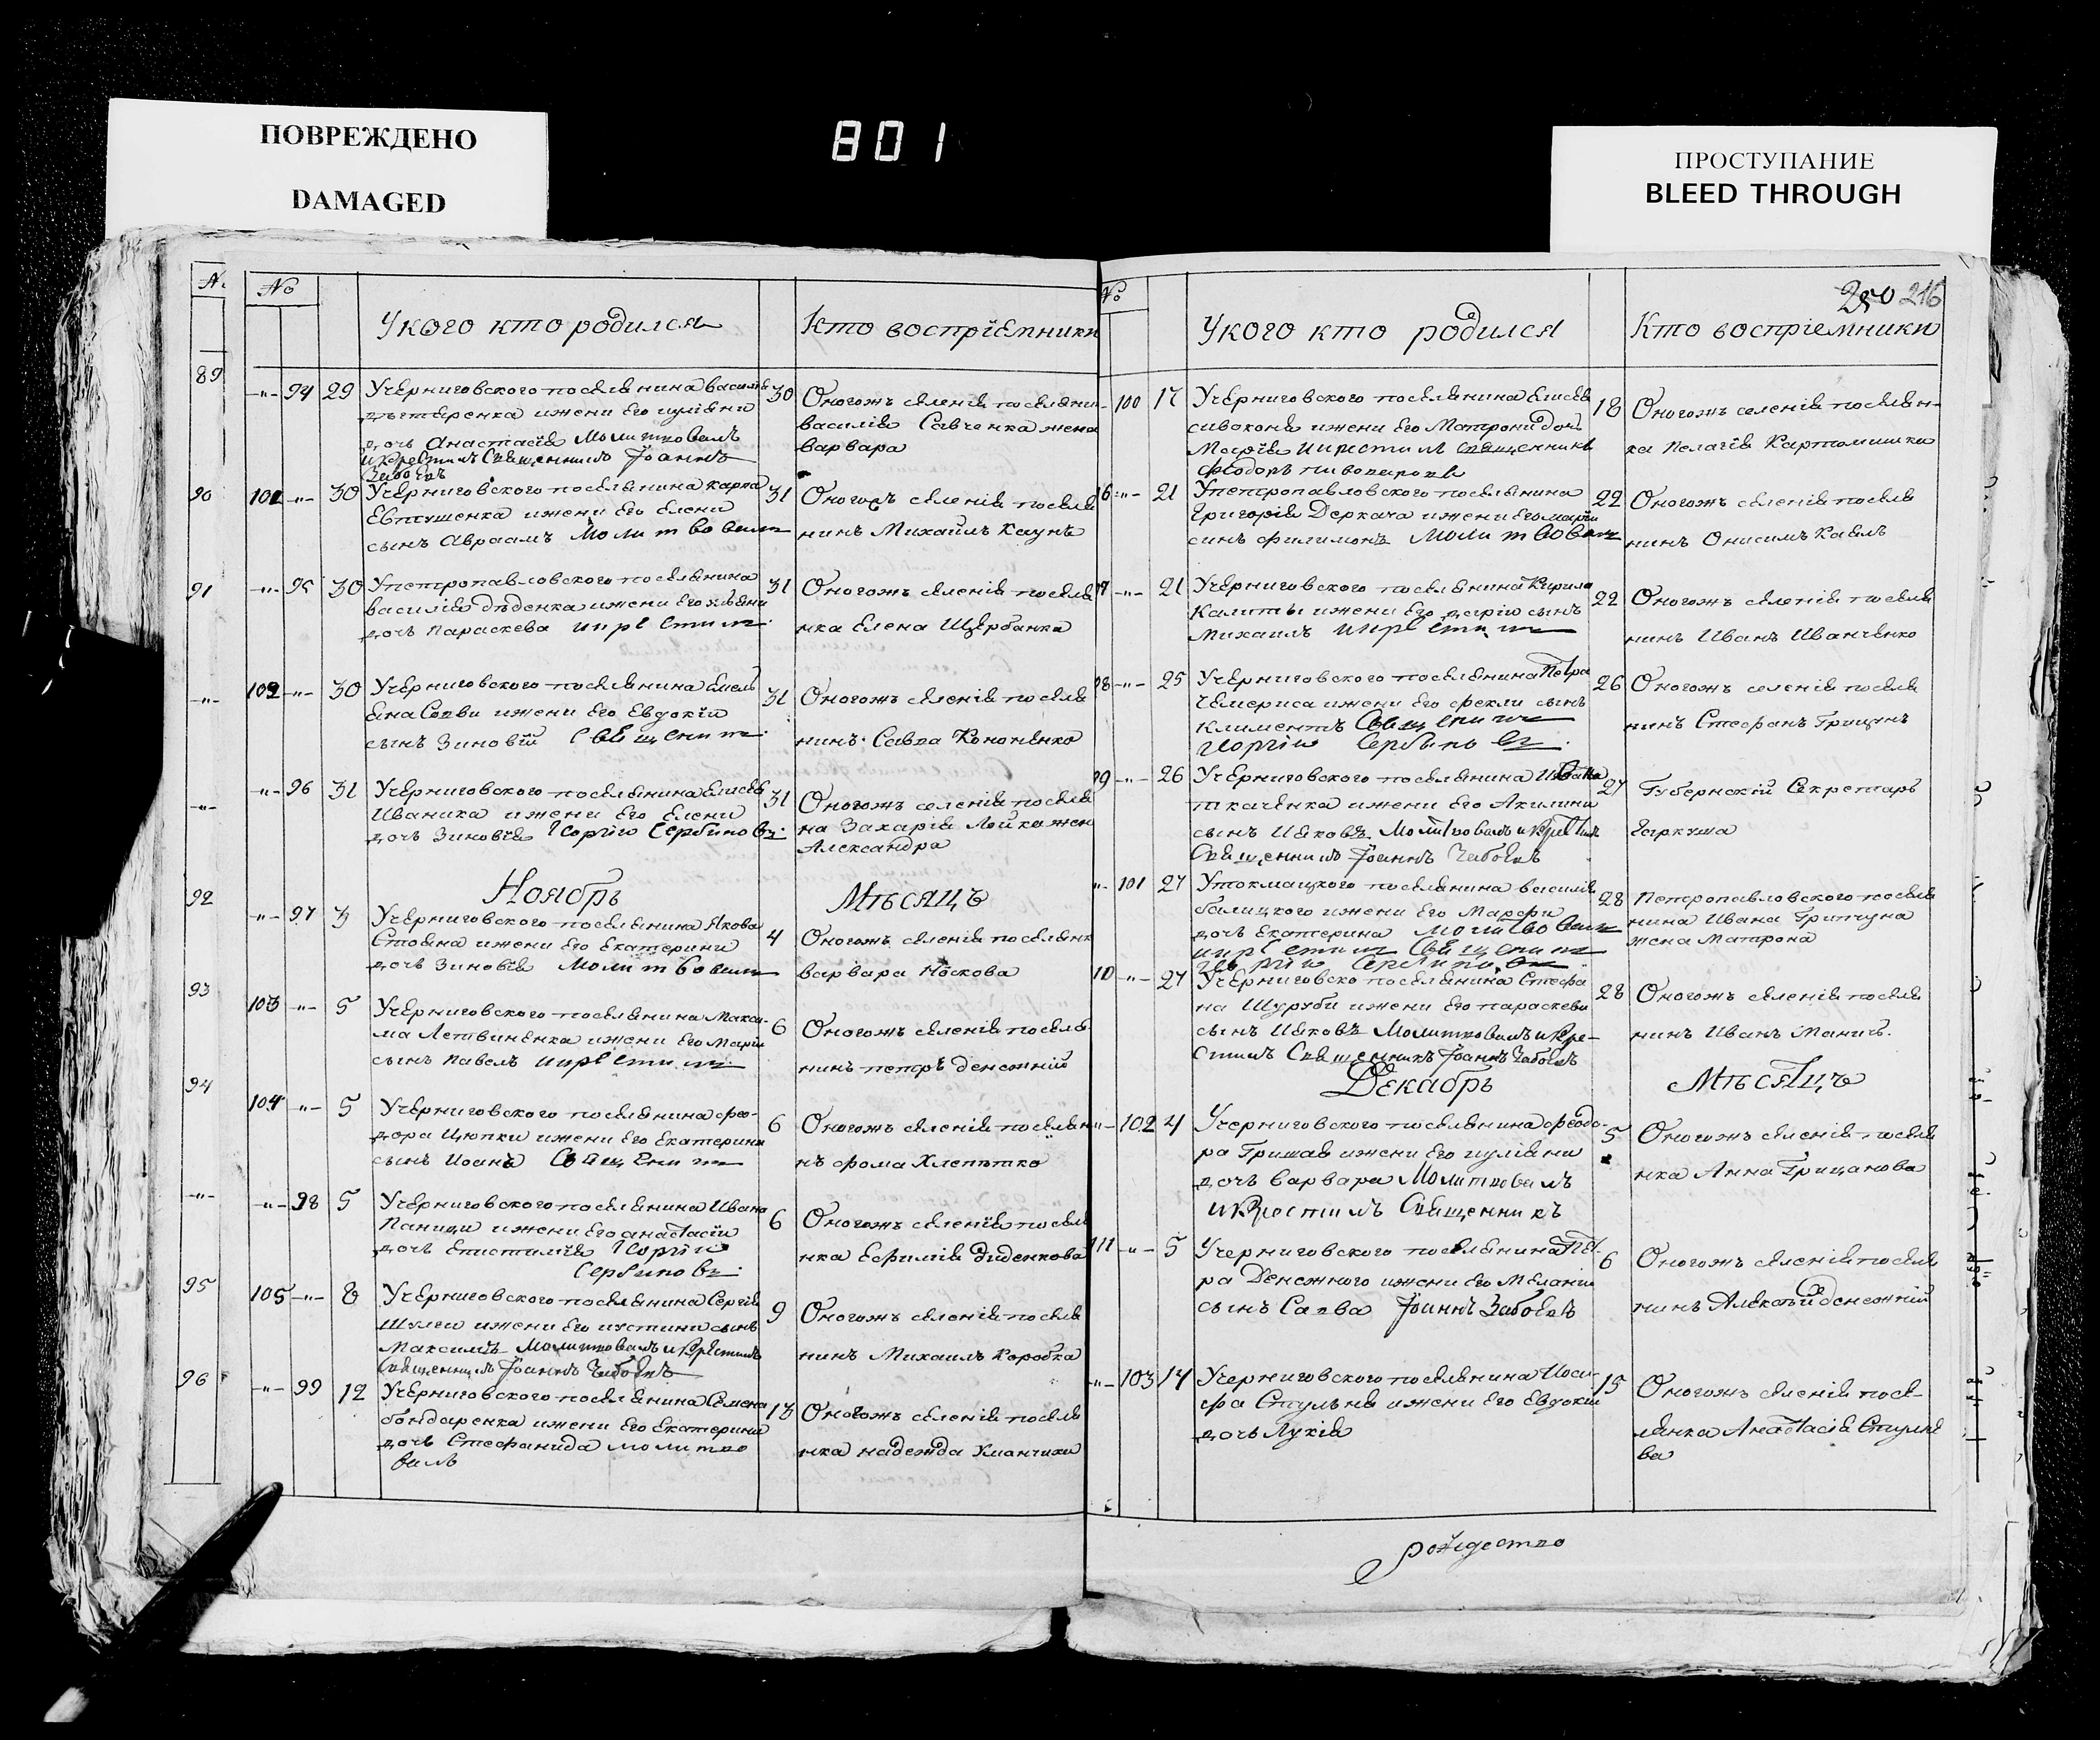 ПОВРЕЖДЕНО
DAMAGED
801
ПРОСТУПАНИЕ
BLEED THROUGH
№
Укого кто родился
Кто воспріемники
89
94 29 Учерниговского поселянина василія
ижени Его иуліяни
дочь Анастасія Молитвовалъ
икрестилъ Священникъ Іоаннъ
30 Оногожъ селенія поселяни
василія Савченка жена
варвара
90
101 30 Учерниговского поселянина карпа
Евтушенка ижени Его Елени
сынъ Авраамъ Молитвовалъ
31 Оногожъ селенія поселя
нинъ Михаилъ Каунъ
91
95 30 Упетропавловского поселянина
василія дѣденка ижени Его
дочь Параскева икрестилъ
31 Оногожъ селенія поселя
нка Елена Щербанка
102 30 Учерниговского поселянина Емель
яна ижени Его Евдокіи
сынъ Зиновій Священникъ
31 Оногожъ селенія поселя
нинъ Савва Кононенко
96 31 Учерниговского поселянина Елисея
Иваника ижени Его Елени
дочь Зиновія Георгій Сербиновъ
31 Оногожъ селенія поселя
на Захарія Лойка жен
Александра
Ноябрь Мѣсяцъ
92
97 3 Учерниговского поселянина Якова
Стояна ижени Его Екатерини
дочь Зиновія Молитвовалъ
4 Оногожъ селенія поселянк
варвара Носкова
93
103 5 Учерниговского поселянина Макси-
ма Летвиненка ижени Его Маріи
сынъ Павелъ икрестилъ
6 Оногожъ селенія поселя
нинъ петръ денежній
94
104 5 Учерниговского поселянина фео-
дора Цюпки ижени Его Екатерини
сынъ Иоанъ Священникъ
6 Оногожъ селенія поселян
нъ фома
98 5 Учерниговского поселянина Ивана
Паници ижени Его анастасіи
дочь Епистимія Георгій
Сербиновъ
6 Оногожъ селенія посел
нка Ефимія диденкова
95
105 8 Учерниговского поселянина Сергія
Шулги ижени Его иустини сынъ
Максимъ Молитвовалъ икрестилъ
Священникъ Іоаннъ
9 Оногожъ селенія поселя
нинъ Михаилъ Коробка
96
99 12 Учерниговского поселянина Семена
бондаренка ижени Его Екатерини
дочь Стефанида молитво
валъ
13 Оногожъ селенія поселя
нка надежда
250 216
№
Укого кто родился
Кто воспріемники
100 17 Учерниговского поселянина Елисея
сивоконя ижени Его Матрони дочь
Марія икрестилъ Священникъ
феодоръ
18 Оногожъ селенія поселян-
ка Пелагія
21 Упетропавловского поселянина
Григорія Деркача ижени Его маріи
синъ филимонъ Молитвовалъ
22 Оногожъ селенія поселя
нинъ Онисимъ
21 Учерниговского поселянина Кирила
Калиты ижени Его даріи сынъ
Михаилъ икрестилъ
22 Оногожъ селенія поселя
нинъ Иванъ Иванченко
25 Учерниговского поселянина Петра
Чемериса ижени Его феклы сынъ
климентъ Священникъ
Георгій Сербиновъ
26 Оногожъ селенія поселя
нинъ Стефанъ Грицинъ
26 Учерниговского поселянина Ивана
ткаченка ижени Его Акилини
сынъ Ияковъ Молитвовалъ икрестилъ
Священникъ Іоаннъ
27 Губернскій Секретарь
101 27 Утокмацкого поселянина василія
балицкого ижени Его Марфи
дочь Екатерина молитвовалъ
икрестилъ Священникъ
Георгій Сербиновъ
28 Петропавловского поселя
нина Ивана Грипчуна
жена Матрона
27 Учерниговско поселянина Стефа
на Шуруби ижени Его параскеви
сынъ Ияковъ Молитвовалъ икре-
стилъ Священникъ Іоаннъ
28 Оногожъ селенія поселя
нинъ Иванъ
Декабрь Мѣсяцъ
102 4 Учерниговского поселянина феодо-
ра Гришая ижени Его иуліяни
дочь варвара Молитвовалъ
икрестилъ Священникъ
5 Оногожъ селенія поселя
нка Анна Грицанова
111 5 Учерниговского поселянина Пет
ра Денежного ижени Его Меланіи
сынъ Савва Іоаннъ
6 Оногожъ селенія поселя
нинъ Алексѣй денежній
103 14 Учерниговского поселянина Иоси-
фа ижени Его Евдокіи
дочь Лукія
15 Оногожъ селенія посе-
лянка Анастасія
ва
рождество